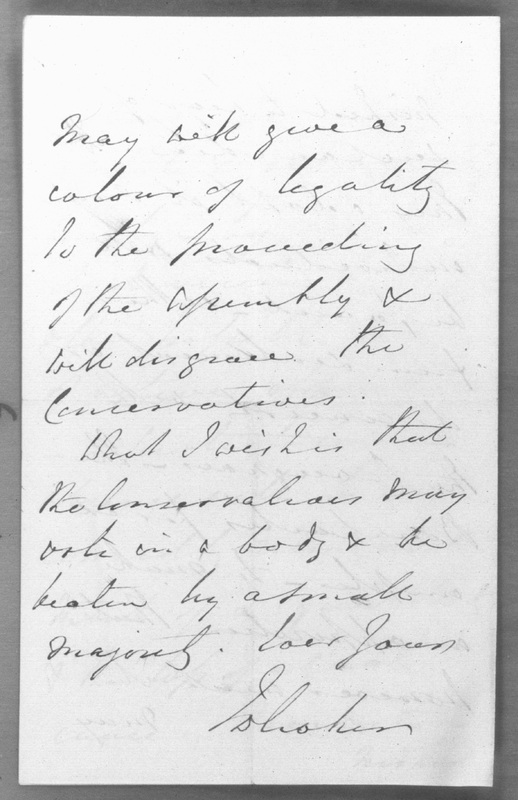 May will give a
colour of legality
to the proceeding
of the assembly &
will disgrace the
Conservatives.
What I wish is that
the Conservatives may
vote in a body & be
beaten by a small
majority. Ever Yours